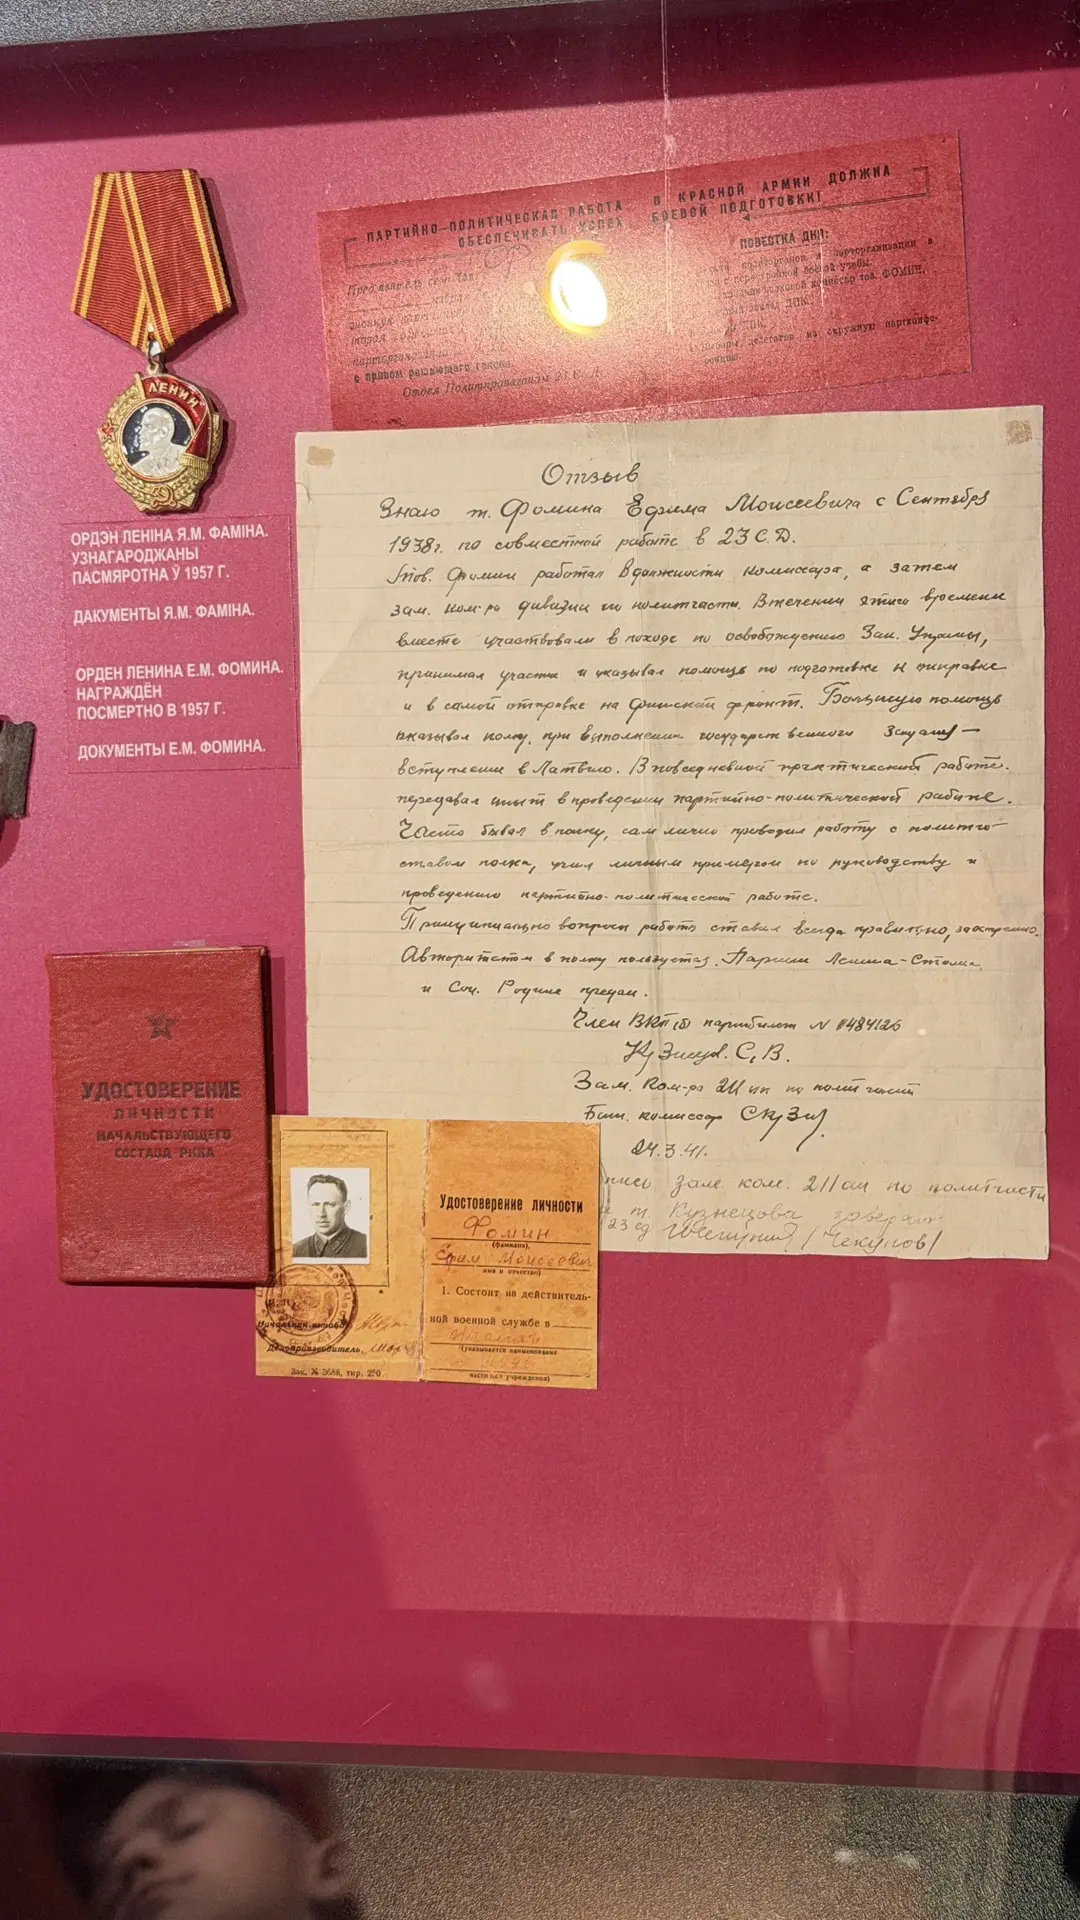 ЛЕНИН
ОРДЭН ЛЕНІНА Я.М. ФАМІНА.
УЗНАГАРОДЖАНЫ
ПАСМЯРОТНА Ў 1957 Г.
ДАКУМЕНТЫ Я.М. ФАМІНА.
ОРДЕН ЛЕНИНА Е.М. ФОМИНА.
НАГРАЖДЁН
ПОСМЕРТНО В 1957 Г.
ДОКУМЕНТЫ Е.М. ФОМИНА.
ПАРТИЙНО-ПОЛИТИЧЕСКАЯ РАБОТА В КРАСНОЙ АРМИИ ДОЛЖНА
ОБЕСПЕЧИВАТЬ УСПЕХ БОЕВОЙ ПОДГОТОВКИ!
ПОВЕСТКА ДНЯ:
парторганизации в
боевой учебы.
комиссар тов. ФОМИН.
ДПК.
ДПК.
делегатов на окружную партконфе-
ренцию.
с правом решающего голоса.
Отдел Политпропаганды
Отзыв
Знаю т. Фомина Ефима Моисеевича с Сентября
1938г. по совместной работе в 23 С.Д.
Тов. Фомин работал в должности комиссара, а затем
зам. ком-ра дивизии по политчасти. В течении этого времени
вместе участвовали в походе по освобождению Зап. Украины,
принимал участие и оказывал помощь по подготовке к отправке
и в самой отправке на финский фронт. Большую помощь
оказывал полку, при выполнении государственного задания —
вступление в Латвию. В повседневной практической работе
передавал опыт в проведении партийно-политической работе.
Часто бывал в полку, сам лично проводил работу с политсо-
ставом полка, учил личным примером по руководству и
проведению партийно-политической работе.
Принципиально вопросы работы ставил всегда правильно, заостренно.
Авторитетом в полку пользуется. Партии Ленина-Сталина
и Соц. Родине предан.
Член ВКП(б) партбилет N 0484126
Кузнецов. С. В.
Зам. Ком-ра 211 сп по политчасти
Бат. комиссар
24.3.41.
зам. ком. 211 сп по политчасти
т. Кузнецова заверяю
23 сд /Чекунов/
УДОСТОВЕРЕНИЕ
ЛИЧНОСТИ
НАЧАЛЬСТВУЮЩЕГО
СОСТАВА РККА
Начальник штаба
Делопроизводитель
Зак. № 3688, тир. 250
Удостоверение личности
Фомин
(фамилия)
Ефим Моисеевич
имя и отчество)
1. Состоит на действитель-
ной военной службе в
(указывается наименование
части или учреждения)